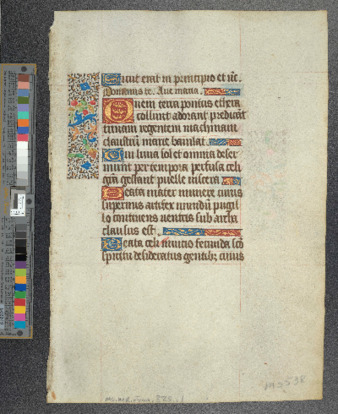 Sicut erat in principio et ѵc.
Dominus te. Aue maria.
Quem terra pontus ethera
colunt adorant predicant
trinam regentem machinam
claustrum marie baiulat.
Cui luna sol et omnia deser
uiunt per tempora perfusa celi
gratia gestant puelle uiscera
Beata mater munere cuius
supernus artifex mundum pugil
lo continens uentris sub archa
clausus est.
Beata celi nuncio fecunda sco
spiritu desideratus gentibus cuius